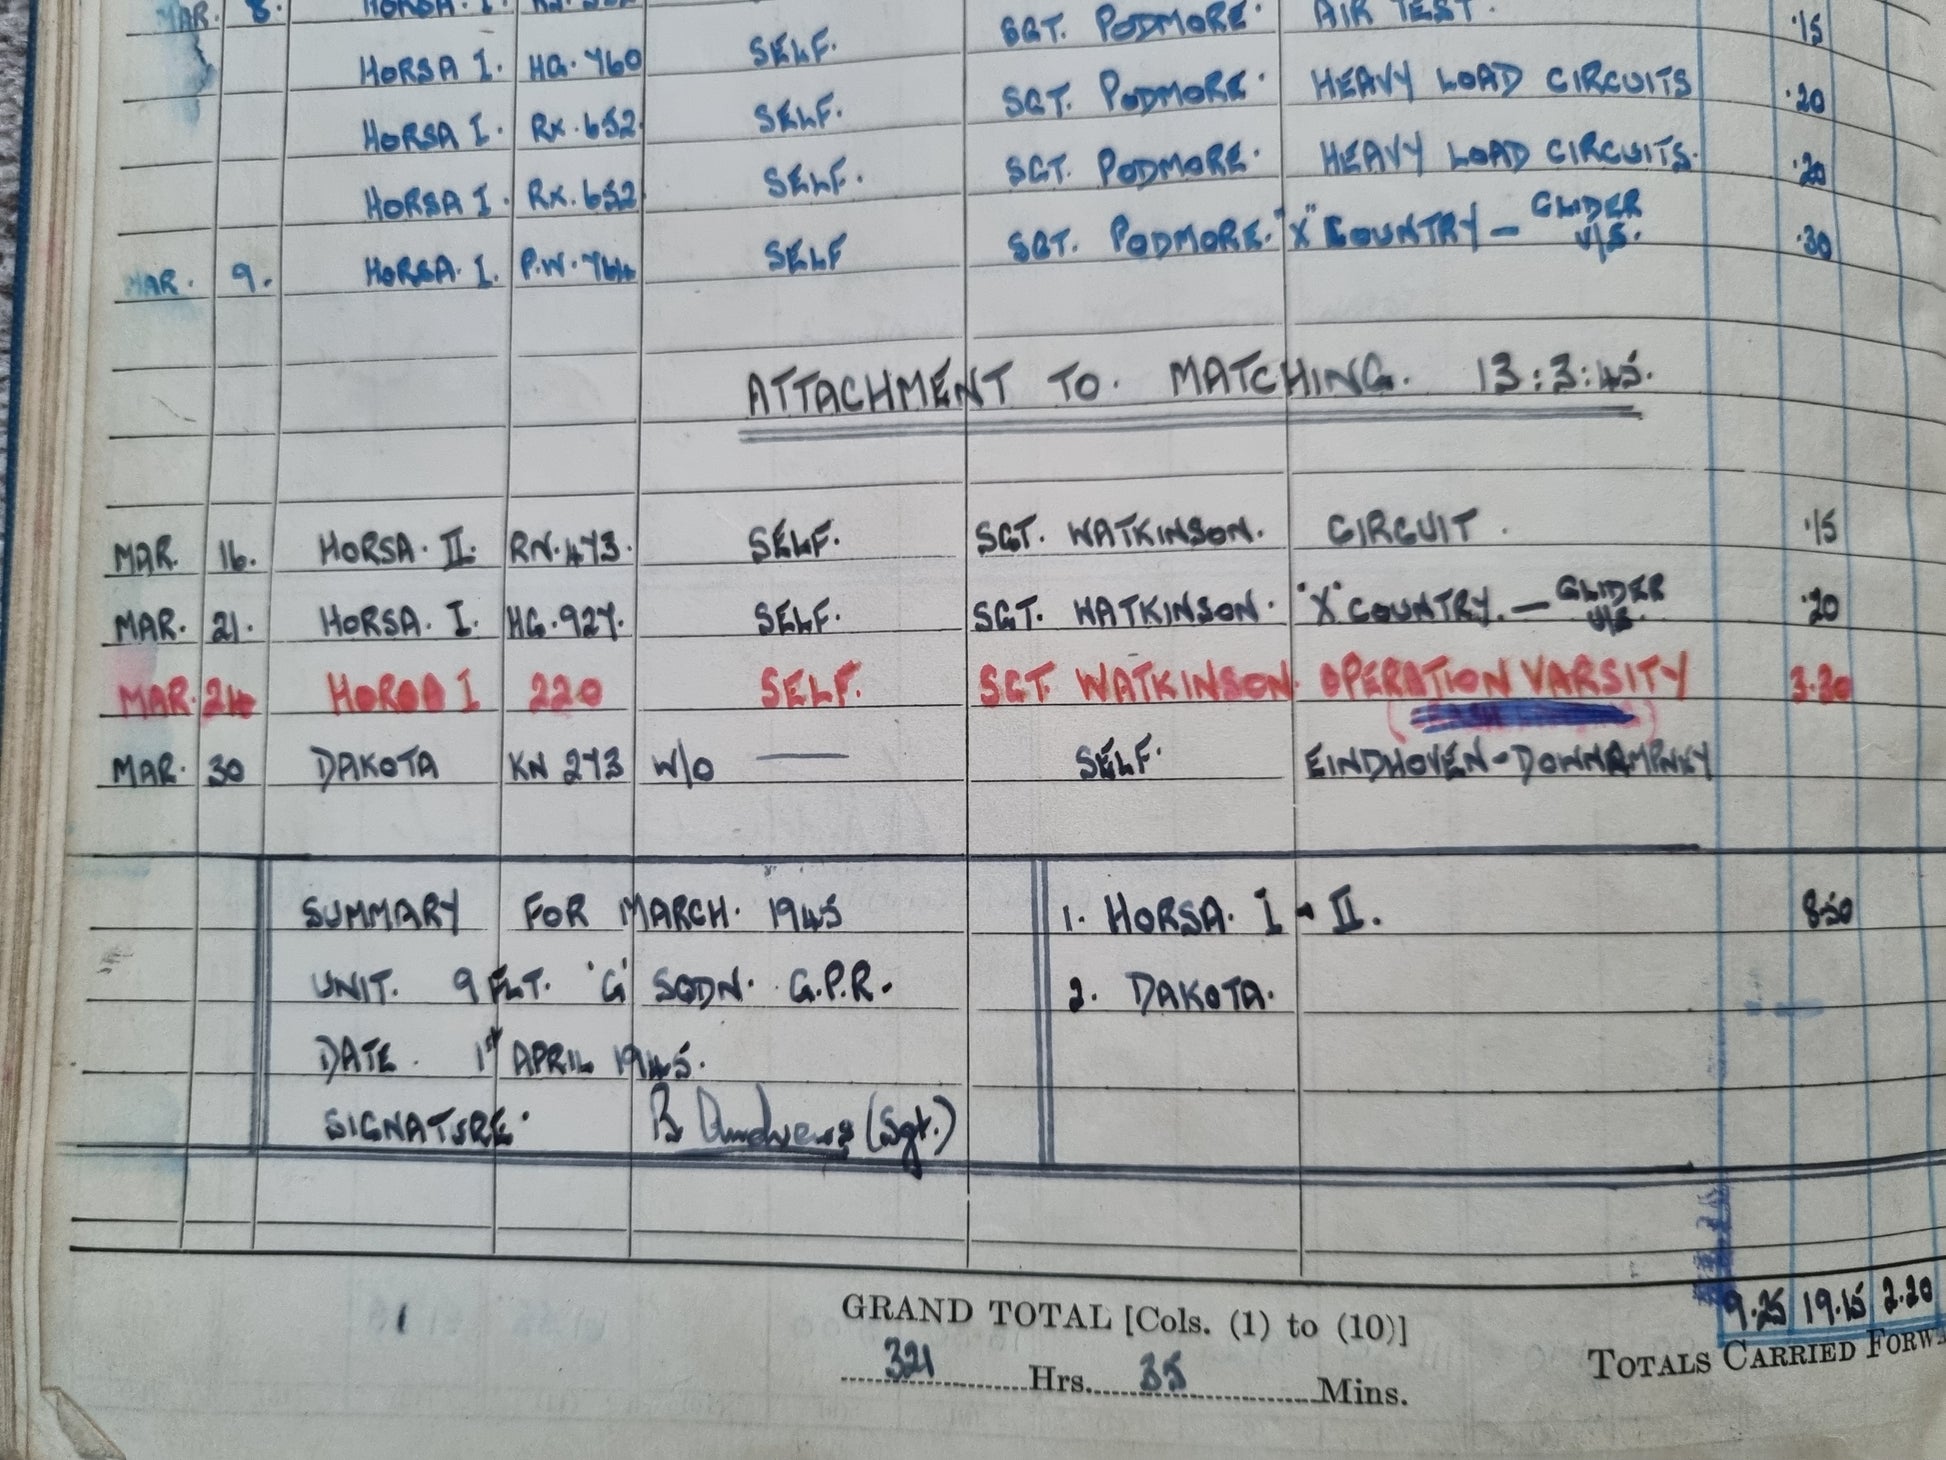 MAR. 8. HORSA. I.
HORSA I. HG. 760 SELF. SGT. PODMORE. AIR TEST. .15
HORSA I. RX. 652 SELF. SGT. PODMORE. HEAVY LOAD CIRCUITS .20
HORSA I. RX. 652 SELF. SGT. PODMORE. HEAVY LOAD CIRCUITS. .20
MAR. 9. HORSA. I. P.W. 764 SELF SGT. PODMORE. "X" COUNTRY — GLIDER U/S. .30
ATTACHMENT TO. MATCHING. 13:3:45.
MAR. 16. HORSA. II. RN. 473. SELF. SGT. WATKINSON. CIRCUIT. .15
MAR. 21. HORSA. I. HG. 927. SELF. SGT. WATKINSON. "X" COUNTRY. — GLIDER U/S. .20
MAR. 24 HORSA I 220 SELF. SGT. WATKINSON. OPERATION VARSITY 3.30
MAR. 30 DAKOTA KN 273 W/O — SELF. EINDHOVEN-DOWNAMPNEY
SUMMARY FOR MARCH. 1945 1. HORSA. I - II. 8.50
UNIT. 9 FLT. 'G' SQDN. G.P.R. 2. DAKOTA.
DATE. 1st APRIL 1945.
SIGNATURE. B Andrews (Sgt.)
9.25 19.15 2.20
GRAND TOTAL [Cols. (1) to (10)]
321 Hrs. 35 Mins.
TOTALS CARRIED FORW